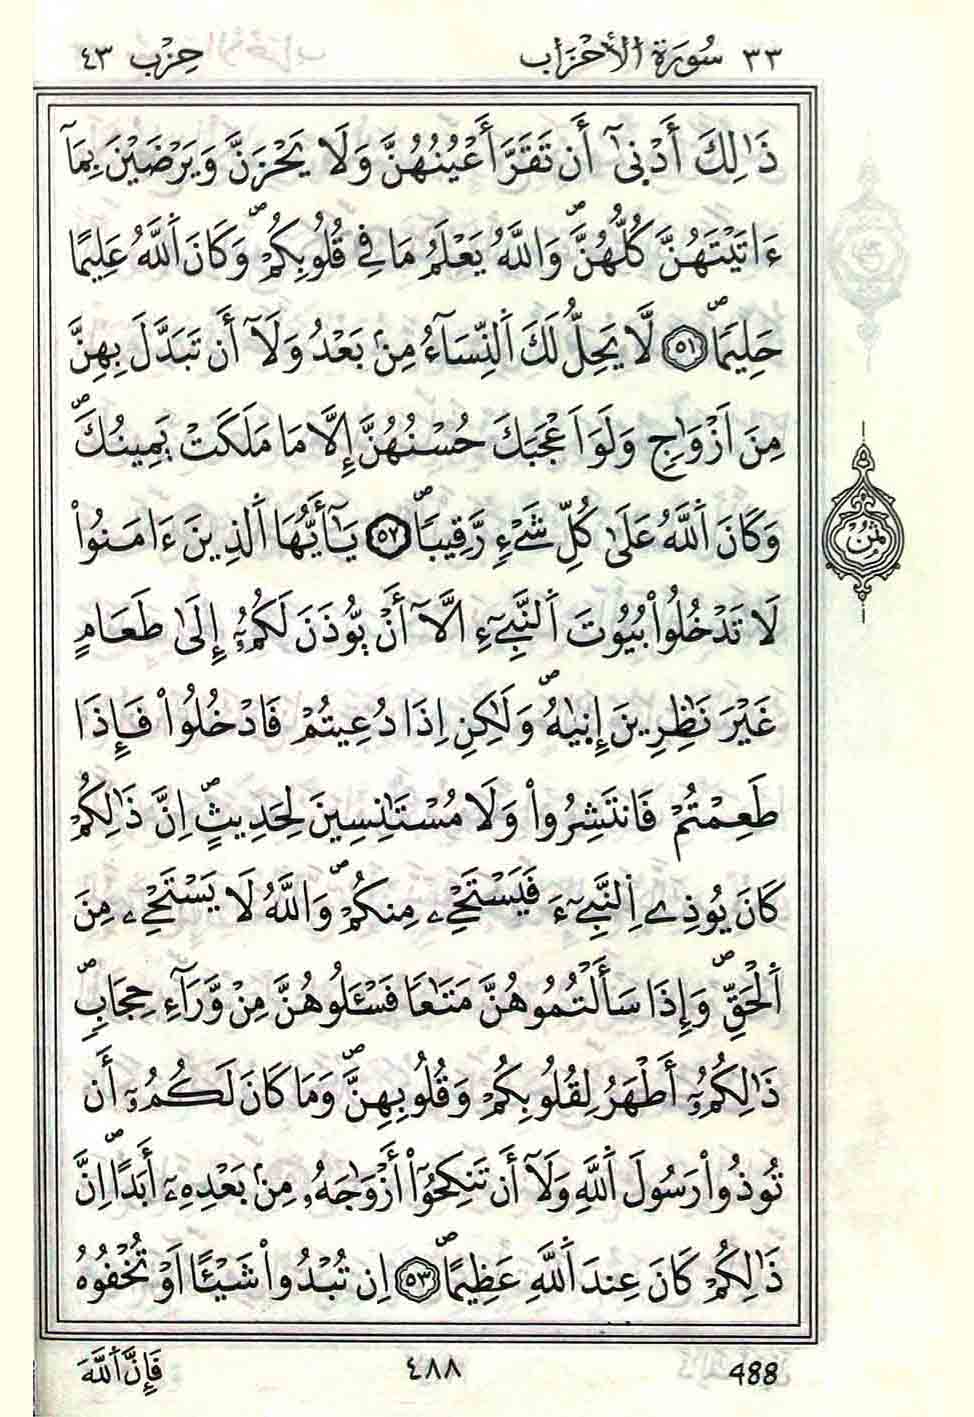 ٣٣ سُورَةُ الْأَحْزَابِ حِزْب ٤٣
ذَٰلِكَ أَدْنَىٰٓ أَن تَقَرَّ أَعْيُنُهُنَّ وَلَا يَحْزَنَّ وَيَرْضَيْنَ بِمَآ
ءَاتَيْتَهُنَّ كُلُّهُنَّۖ وَاللَّهُ يَعْلَمُ مَا فِي قُلُوبِكُمْۖ وَكَانَ اَللَّهُ عَلِيمًا
حَلِيمًاۖ ٥١ لَّا يَحِلُّ لَكَ اَلنِّسَآءُ مِنۢ بَعْدُ وَلَآ أَن تَبَدَّلَ بِهِنَّ
مِنَ اَزْوَٰجٍ وَلَوَ اَعْجَبَكَ حُسْنُهُنَّ إِلَّا مَا مَلَكَتْ يَمِينُكَۖ
وَكَانَ اَللَّهُ عَلَىٰ كُلِّ شَيْءٍ رَّقِيبًاۖ ٥٢ يَٰٓأَيُّهَا اَلذِينَ ءَامَنُواْ
ثُمُن
لَا تَدْخُلُواْ بُيُوتَ اَلنَّبِيٓءِ الَّآ أَنْ يُّوذَنَ لَكُمُۥٓ إِلَىٰ طَعَامٍ
غَيْرَ نَٰظِرِينَ إِنَيٰهُۖ وَلَٰكِنِ اِذَا دُعِيتُمْ فَادْخُلُواْ فَإِذَا
طَعِمْتُمْ فَانتَشِرُواْ وَلَا مُسْتَٰنِسِينَ لِحَدِيثٍۖ اِنَّ ذَٰلِكُمْ
كَانَ يُوذِے اِلنَّبِيٓءَ فَيَسْتَحْيِۦ مِنكُمْۖ وَاللَّهُ لَا يَسْتَحْيِۦ مِنَ
اَلْحَقِّۖ وَإِذَا سَأَلْتُمُوهُنَّ مَتَٰعًا فَسْـَٔلُوهُنَّ مِنْ وَّرَآءِ حِجَابٍۖ
ذَٰلِكُمُۥٓ أَطْهَرُ لِقُلُوبِكُمْ وَقُلُوبِهِنَّۖ وَمَا كَانَ لَكُمُۥٓ أَن
تُوذُواْ رَسُولَ اَللَّهِ وَلَآ أَن تَنكِحُوٓاْ أَزْوَٰجَهُۥ مِنۢ بَعْدِهِۦٓ أَبَدًاۖ اِنَّ
ذَٰلِكُمْ كَانَ عِندَ اَللَّهِ عَظِيمًاۖ ٥٣ اِن تُبْدُواْ شَيْـًٔا اَوْ تُخْفُوهُ
488 ٤٨٨ فَإِنَّ اَللَّهَ